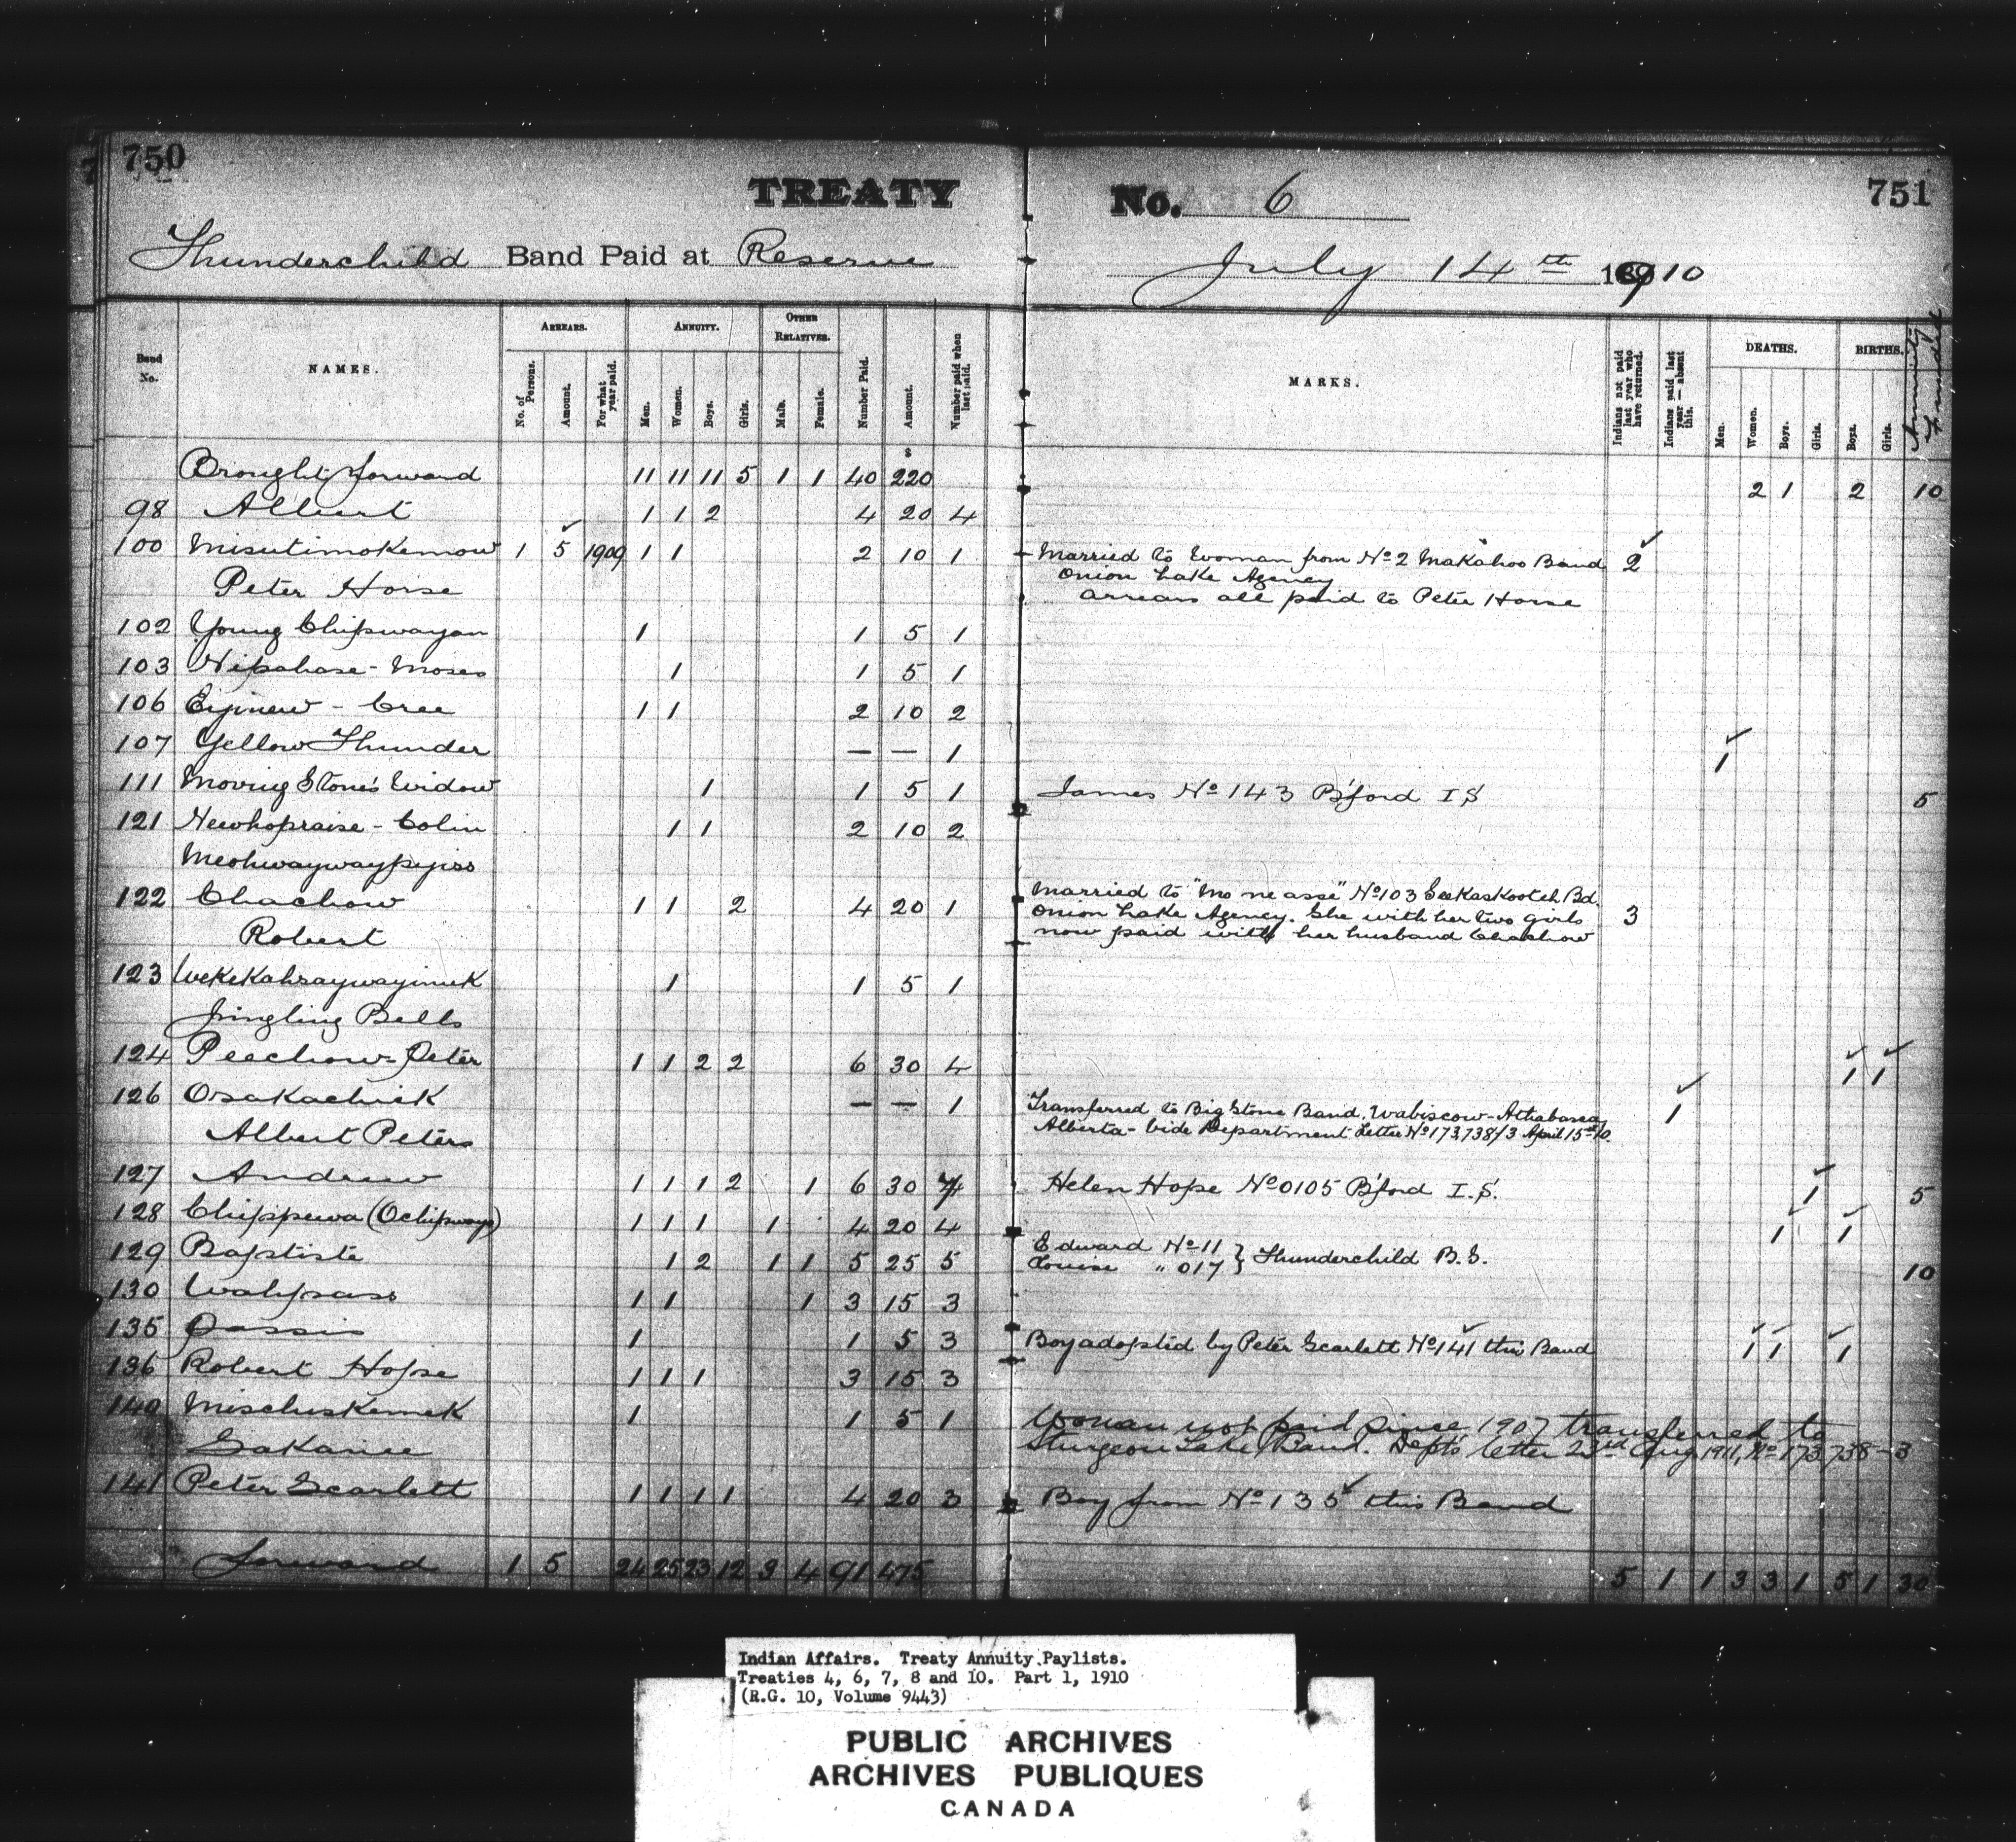 750
TREATY No. 6
751
Thunderchild Band Paid at Reserve July 14th 1910
Band No.
NAMES.
ARREARS.
No. of Persons.
Amount.
For what year paid.
ANNUITY.
Men.
Women.
Boys.
Girls.
OTHER RELATIVES.
Male.
Female.
Number Paid.
Amount.
Number paid when last paid.
MARKS.
Indians not paid last year who have returned.
Indians paid last year — absent this.
DEATHS.
Men.
Women.
Boys.
Girls.
BIRTHS.
Boys.
Girls.
Annuity
Brought forward 11 11 11 5 1 1 40 $ 220 2 1 2 10
98 Albert 1 1 2 4 20 4
100 Misutimokemow 1 5 1909 1 1 2 10 1 Married to Woman from No 2 Makahoo Band 2
Peter Horse Onion Lake Agency
arrears all paid to Peter Horse
102 Young Chipwayan 1 1 5 1
103 Nipahase - Moses 1 1 5 1
106 Eyinew - Cree 1 1 2 10 2
107 Yellow Thunder — — 1 1
111 Moving Stone's Widow 1 1 5 1 James No 143 B'ford I S 5
121 Newhopraise - Colin 1 1 2 10 2
Meohwaywaypiyiss
122 Chachow 1 1 2 4 20 1 Married to "Mo ne asse" No 103 Seekaskootch Bd.
Onion Lake Agency. She with her two girls 3
Robert now paid with her husband Chachow
123 Wekekahsaywayinuk 1 1 5 1
Jingling Bells
124 Peechow - Peter 1 1 2 2 6 30 4 1 1
126 Osakachick — — 1 Transferred to Big Stone Band. Wabiscow - Athabasca, 1
Albert Peters Alberta - vide Department Letter No 173738/3 April 15th 10.
127 Andrew 1 1 1 2 1 6 30 7 Helen Hope No 0105 B'ford I.S. 1 5
128 Chippewa (Ochipways) 1 1 1 1 4 20 4 1 1
129 Baptiste 1 2 1 1 5 25 5 Edward No 11 } Thunderchild B.S.
Louise " 017 } 10
130 Wahpass 1 1 1 3 15 3
135 Passis 1 1 5 3 Boy adopted by Peter Scarlett No 141 this Band 1 1 1
136 Robert Hope 1 1 1 3 15 3
140 Mischiskemek 1 1 5 1 Woman not paid since 1907 transferred to
Sakanee Sturgeon Lake Band. Dept's letter 23rd Aug 1911, No 173,738-3
141 Peter Scarlett 1 1 1 1 4 20 3 Boy from No 135 this Band
Forward 1 5 24 25 23 12 3 4 91 475 5 1 1 3 3 1 5 1 30
Indian Affairs. Treaty Annuity Paylists.
Treaties 4, 6, 7, 8 and 10. Part 1, 1910
(R.G. 10, Volume 9443)
PUBLIC ARCHIVES
ARCHIVES PUBLIQUES
CANADA